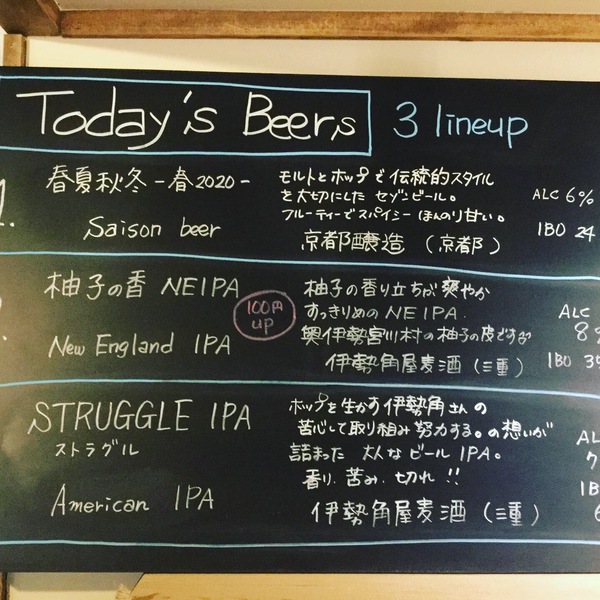 Today's Beers 3 lineup
1.
春夏秋冬 -春2020-
Saison beer
モルトとホップで伝統的スタイル
を大切にした セゾンビール。
フルーティーでスパイシー ほんのり甘い。
京都醸造 (京都)
ALC 6%
IBO 24
柚子の香 NEIPA
100円
up
New England IPA
柚子の香り立ちが爽やか
すっきりめのNEIPA.
奥伊勢宮川村の柚子の皮です
伊勢角屋麦酒 (三重)
ALC
8
IBO 3
STRUGGLE IPA
ストラグル
American IPA
ホップを生かす伊勢角さんの
苦心して取り組み努力する。の想いが
詰まった 大人なビール IPA。
香り. 苦み. 切れ!!
伊勢角屋麦酒 (三重)
AL
7
IB